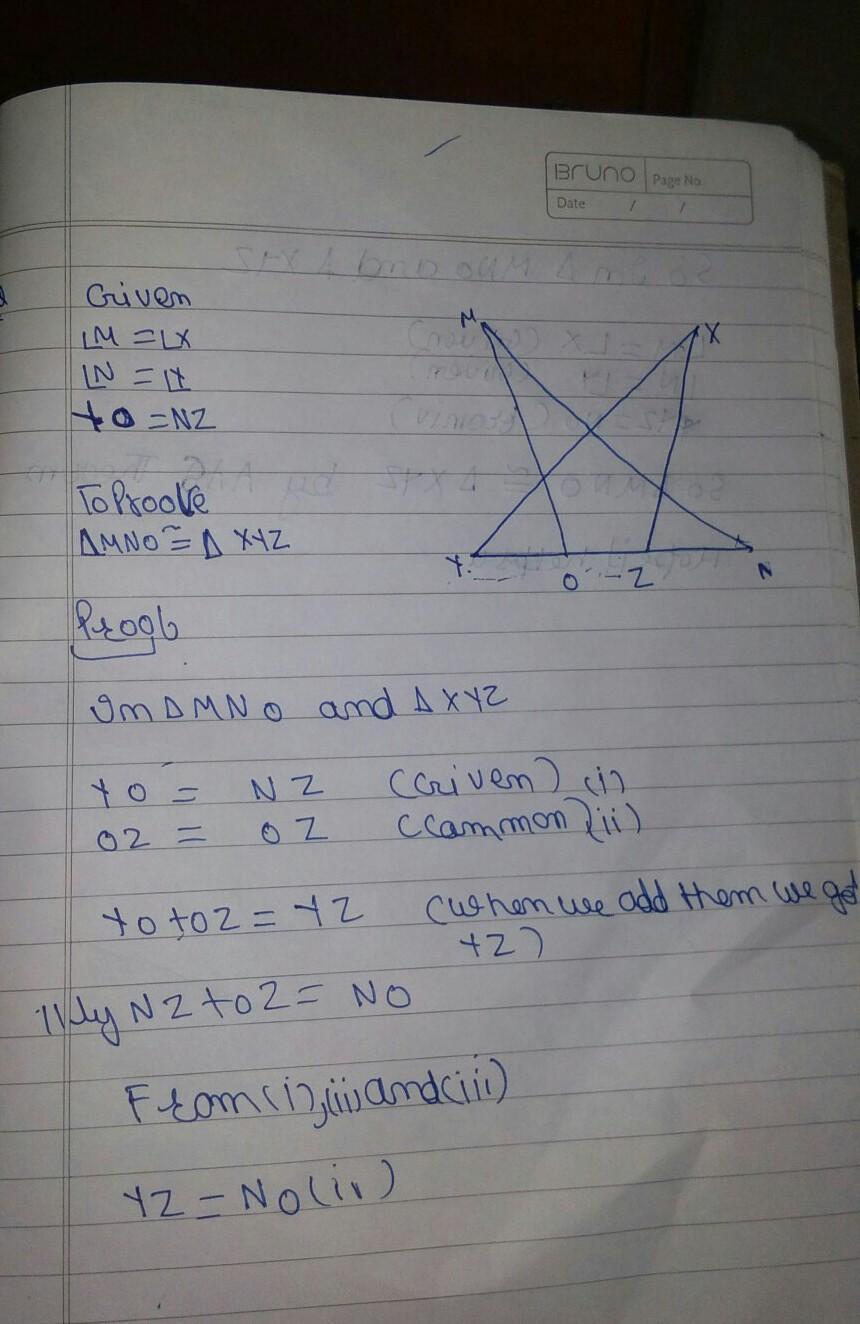 BRUNO Page No.
Date / /
Given
∠M = ∠X
∠N = ∠Y
YO = NZ
ToProove
ΔMNO ≅ Δ XYZ
M
X
Y
O
Z
N
Proof
In ΔMNO and ΔXYZ
YO = NZ (Given) (i)
OZ = OZ (Cammon) (ii)
YO + OZ = YZ (when we add them we get
YZ)
||ly NZ + OZ = NO
From (i), (ii) and (iii)
YZ = NO (iv)